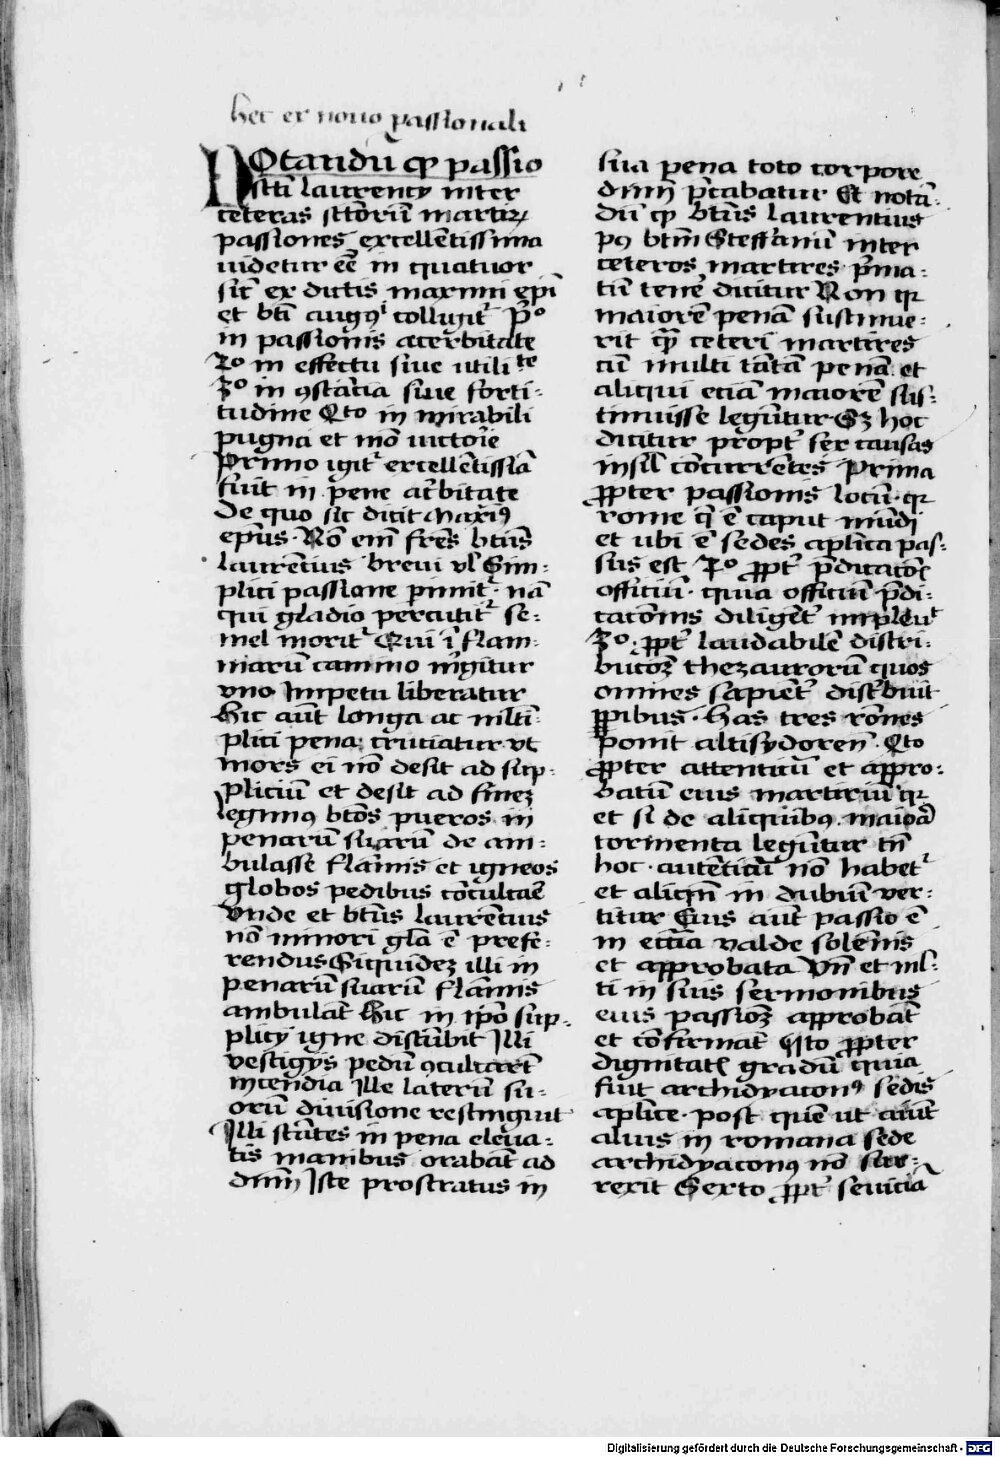 hec ex nouo passionali
NOtandū ꝙ passio
scti laurencÿ inter
ceteras sctōrū martirꝝ
passiones excellētissima
uidetur eē in quatuor
sic̄ ex dictis maximi ep̄i
et bt̄i augꝰi colligit᷑ Pº
in passionis acerbitate
2º in effectu siue utilitᵗᵉ
3º in ꝯstācia siue forti-
tudine Qͦto in mirabili
pugna et mō uictorie
Primo igit᷑ excellētissīa
fuit in pene ac̄bitate
De quo sic dicit Maxīꝰ
ep̄us · Nō em̄ fr̄es bt̄us
laurēcius breui ul̄ Sim-
plici passione p̲imit᷑ · nā
qui gladio percutit᷑ se-
mel morit᷑ Qui ī flam-
marū camino m̄gitur
vno Impetu liberatur
Hic aūt longa ac ml̄ti-
plici pena cruciatur vt
mors ei nō desit ad sup-
pliciū et desit ad finez
Legimꝰ bt̄os pueros in
penarū suarū de am-
bulasse flāmis et igneos
globos pedibus cōculcaē
Vnde et bt̄us laurēcius
nō minori gl̄a ē prefe-
rendus Siquidez illi in
penarū suarū flāmis
ambulāt Hic in ip̄o sup-
plicÿ igne discūbit Illi
vestigÿs pedū ꝯculcart̄
incendia Ille laterū su-
orū diuisione restinguit
Illi stātes in pena eleua-
tis manibus orabāt ad
dn̄m Iste prostratus in
sua pena toto corpore
dn̄m p̄cabatur Et notā-
dū ꝙ bt̄us laurentius
pꝰ bt̄m Steffanū inter
ceteros martires p̄ma-
tū tenē dicitur Non qꝛ
maiorē penā sustinue-
rit ꝗ̄ ceteri martires
cū multi tātā penā et
aliqui eciā maiorē sus-
tinuisse legūtur Sꝫ hoc
dicitur propt᷑ sex causas
insil̄ cōcurrētes Prima
ꝓpter passionis locū · qꝛ
rome q̄ ē caput mūdi
et ubi ē sedes aplīca pas-
sus est 2º ꝓpt᷑ p̄dicacōꝭ
officiū · quia officiū p̄di-
cacōnis diligēt᷑ impleuᵗ
3º · ꝓpt᷑ laudabilē distri-
bucōꝫ thezaurorū quos
omnes sapiēt᷑ dist᷑buit
ꝑꝑibus · Has tres rōnes
ponit altisydoren̄ · Qͦto
ꝓpter attenticū et appro-
batū eius martiriū qꝛ
et si de aliquibꝰ maioā
tormenta legūtur tn̄
hoc · autēticū nō habet᷑
et aliqn̄ in dubiū ver-
titur Eius aūt passio ē
in ecc̄ia valde solēnis
et approbata Vn̄ et ml̄-
ti in suis sermonibus
eius passioꝫ approbāt
et cōfirmāt Qͥto ꝓpter
dignitatꝭ gradū quia
fuit archidyaconꝰ sedis
aplīce · post quē ut aiūt
alius in romana sede
archidyaconꝰ nō sur-
rexit Sexto ꝓpt᷑ seuicia
Digitalisierung gefördert durch die Deutsche Forschungsgemeinschaft - DFG